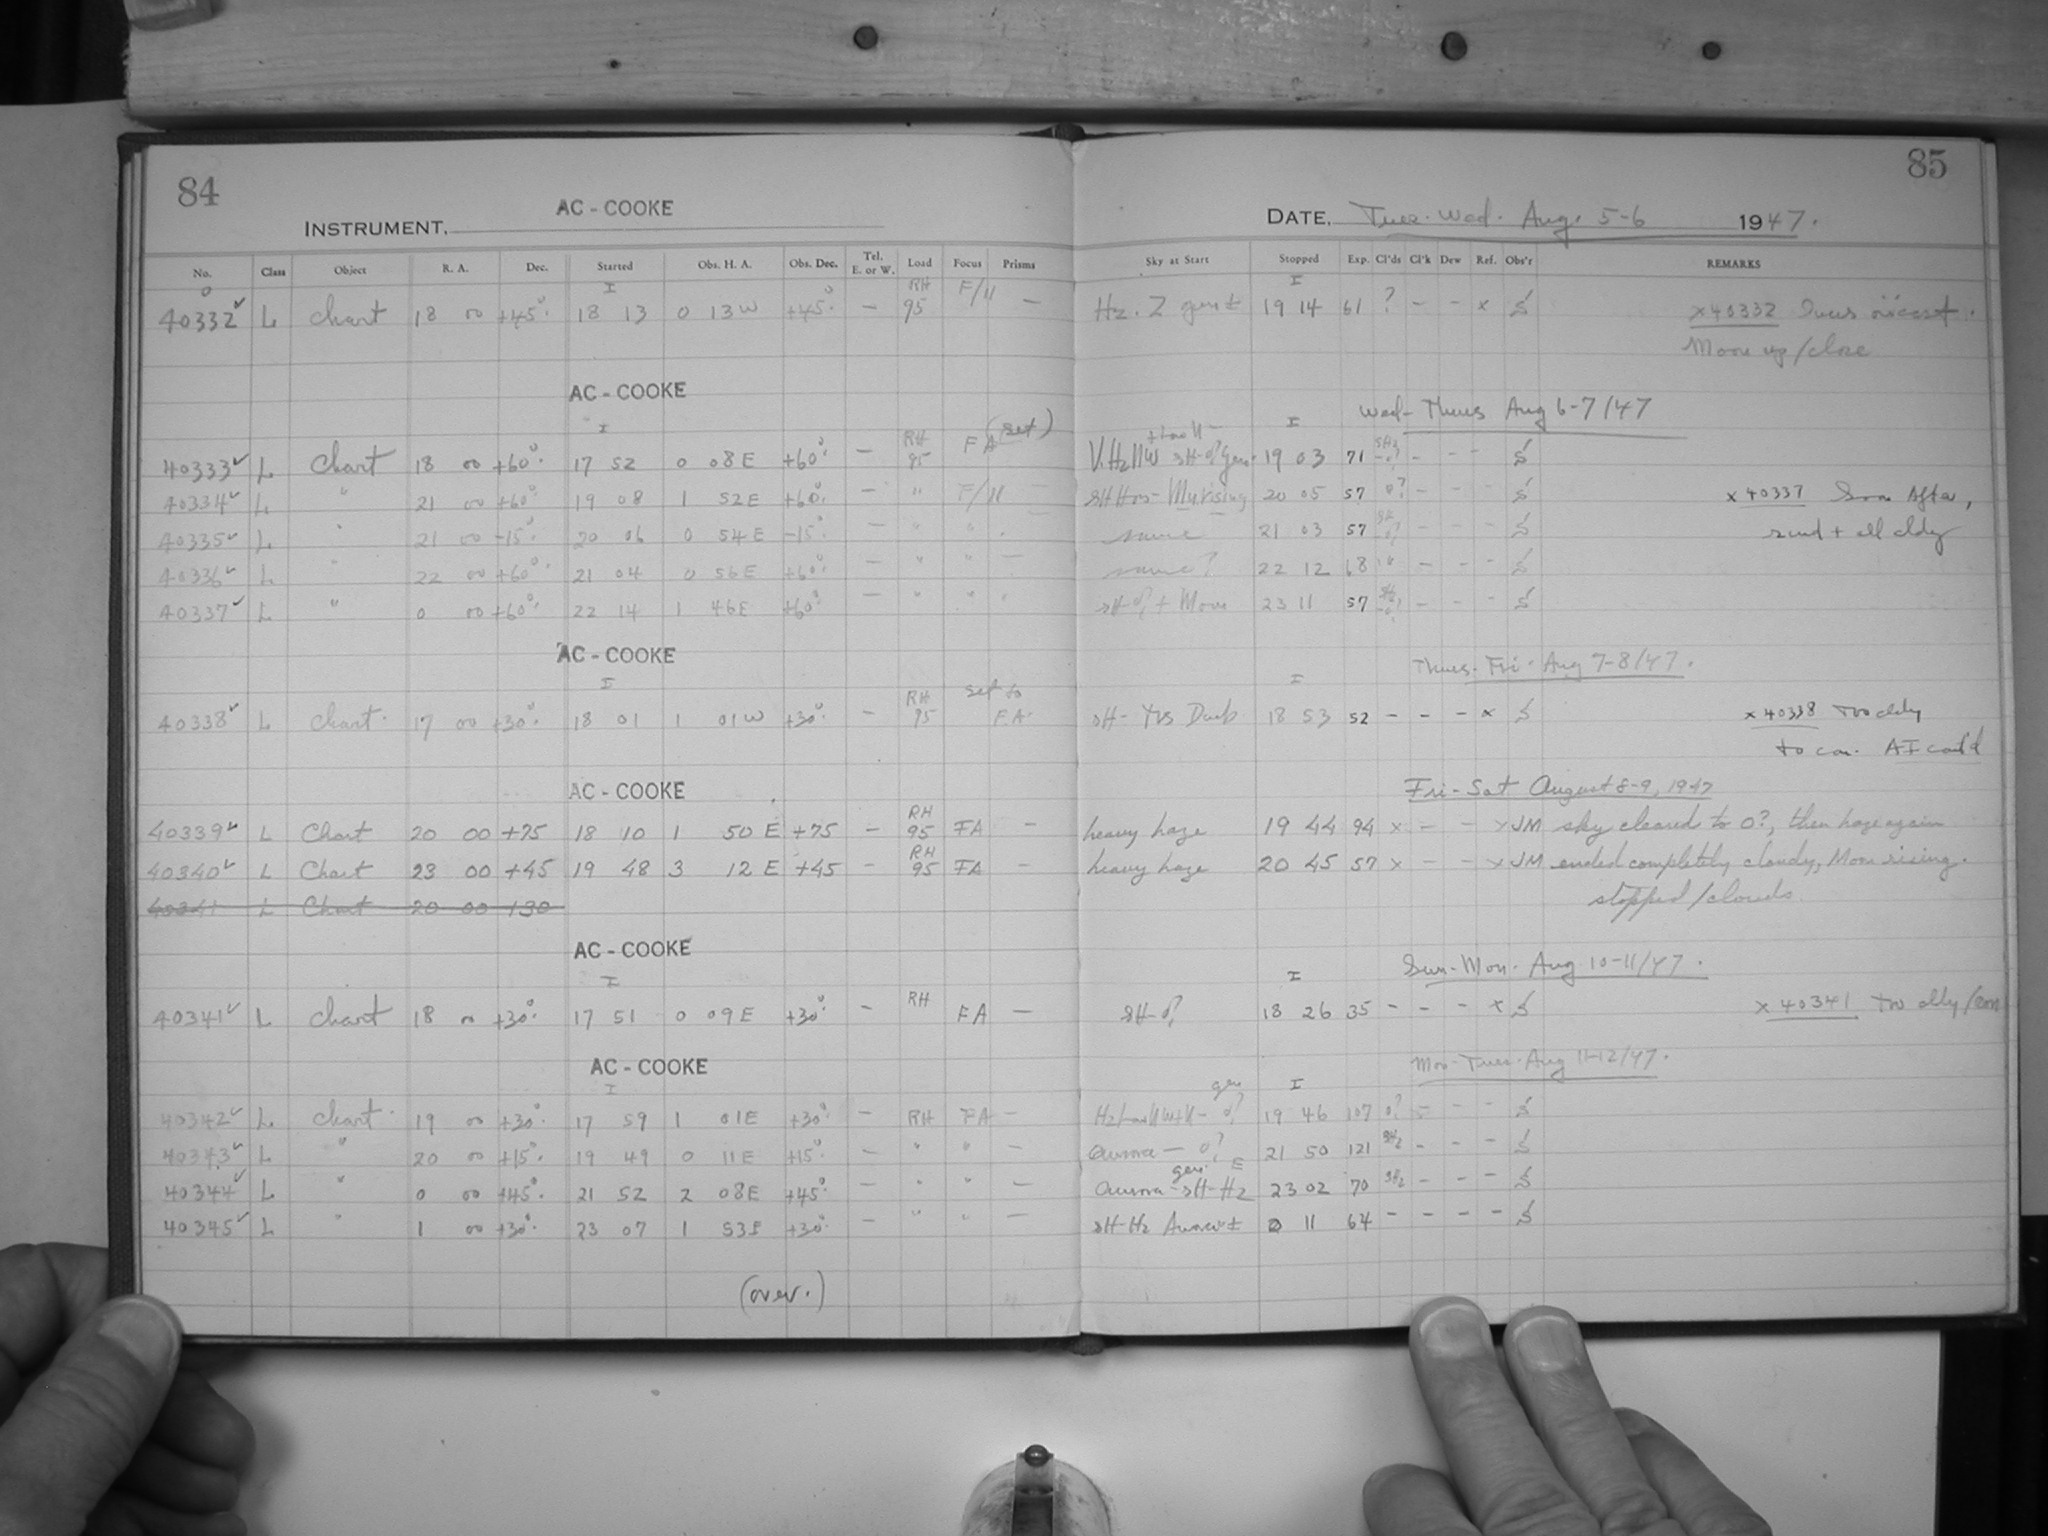 84
85
AC - COOKE
INSTRUMENT.
DATE. Tues. Wed. Aug. 5-6 1947.
No. Class Object R. A. Dec. Started Obs. H. A. Obs. Dec. Tel. E. or W. Load Focus Prisms Sky at Start Stopped Exp. Cl'ds Cl'k Dew Ref. Obs'r REMARKS
40332 ✓ L Chart 18 00 +45° 18 13 0 13 W +45° - RH 95 F/11 - Hz. Z 19 14 61 ? - - x S x 40332
Moon up/close
AC - COOKE
Wed- Thurs Aug 6-7/47
40333 ✓ L Chart 18 00 +60° 17 52 0 08 E +60° - RH 95 FA (set) 19 03 71 - - - S
40334 ✓ L " 21 00 +60° 19 08 1 52 E +60° - " F/11 20 05 57 0? - - - S x 40337 Soon After,
40335 ✓ L " 21 00 -15° 20 06 0 54 E -15° - " " same 21 03 57 - - - S + all cldy
40336 ✓ L " 22 00 +60° 21 04 0 56 E +60° - " " - same? 22 12 68 " - - - S
40337 ✓ L " 0 00 +60° 22 14 1 46 E +60° - " " " + Moon 23 11 57 - - - S
AC - COOKE
Thurs- Fri- Aug 7-8/47.
40338 ✓ L Chart 17 00 +30° 18 01 1 01 W +30° - RH 95 set to FA 18 53 52 - - - x S x 40338 Too cldy
to con.
AC - COOKE
Fri- Sat August 8-9, 1947
40339 ✓ L Chart 20 00 +75 18 10 1 50 E +75 - RH 95 FA - heavy haze 19 44 94 x - - x JM sky cleared to 0?, then haze again
40340 ✓ L Chart 23 00 +45 19 48 3 12 E +45 - RH 95 FA - heavy haze 20 45 57 x - - x JM ended completely cloudy, Moon rising.
40341 L Chart 20 00 +30 stopped/clouds.
AC - COOKE
Sun- Mon- Aug 10-11/47.
40341 ✓ L Chart 18 00 +30° 17 51 0 09 E +30° - RH FA - 18 26 35 - - - x S x 40341 Too cldy
AC - COOKE
Mon- Tues- Aug 11-12/47.
40342 ✓ L Chart 19 00 +30° 17 59 1 01 E +30° - RH FA - 19 46 107 0? - - - S
40343 ✓ L " 20 00 +15° 19 49 0 11 E +15° - " " - Aurora - 0? 21 50 121 - - - S
40344 ✓ L " 0 00 +45° 21 52 2 08 E +45° - " " - Aurora - sH-Hz 23 02 70 - - - S
40345 ✓ L " 1 00 +30° 23 07 1 53 E +30° - " " - sH-Hz 0 11 64 - - - - S
(over.)